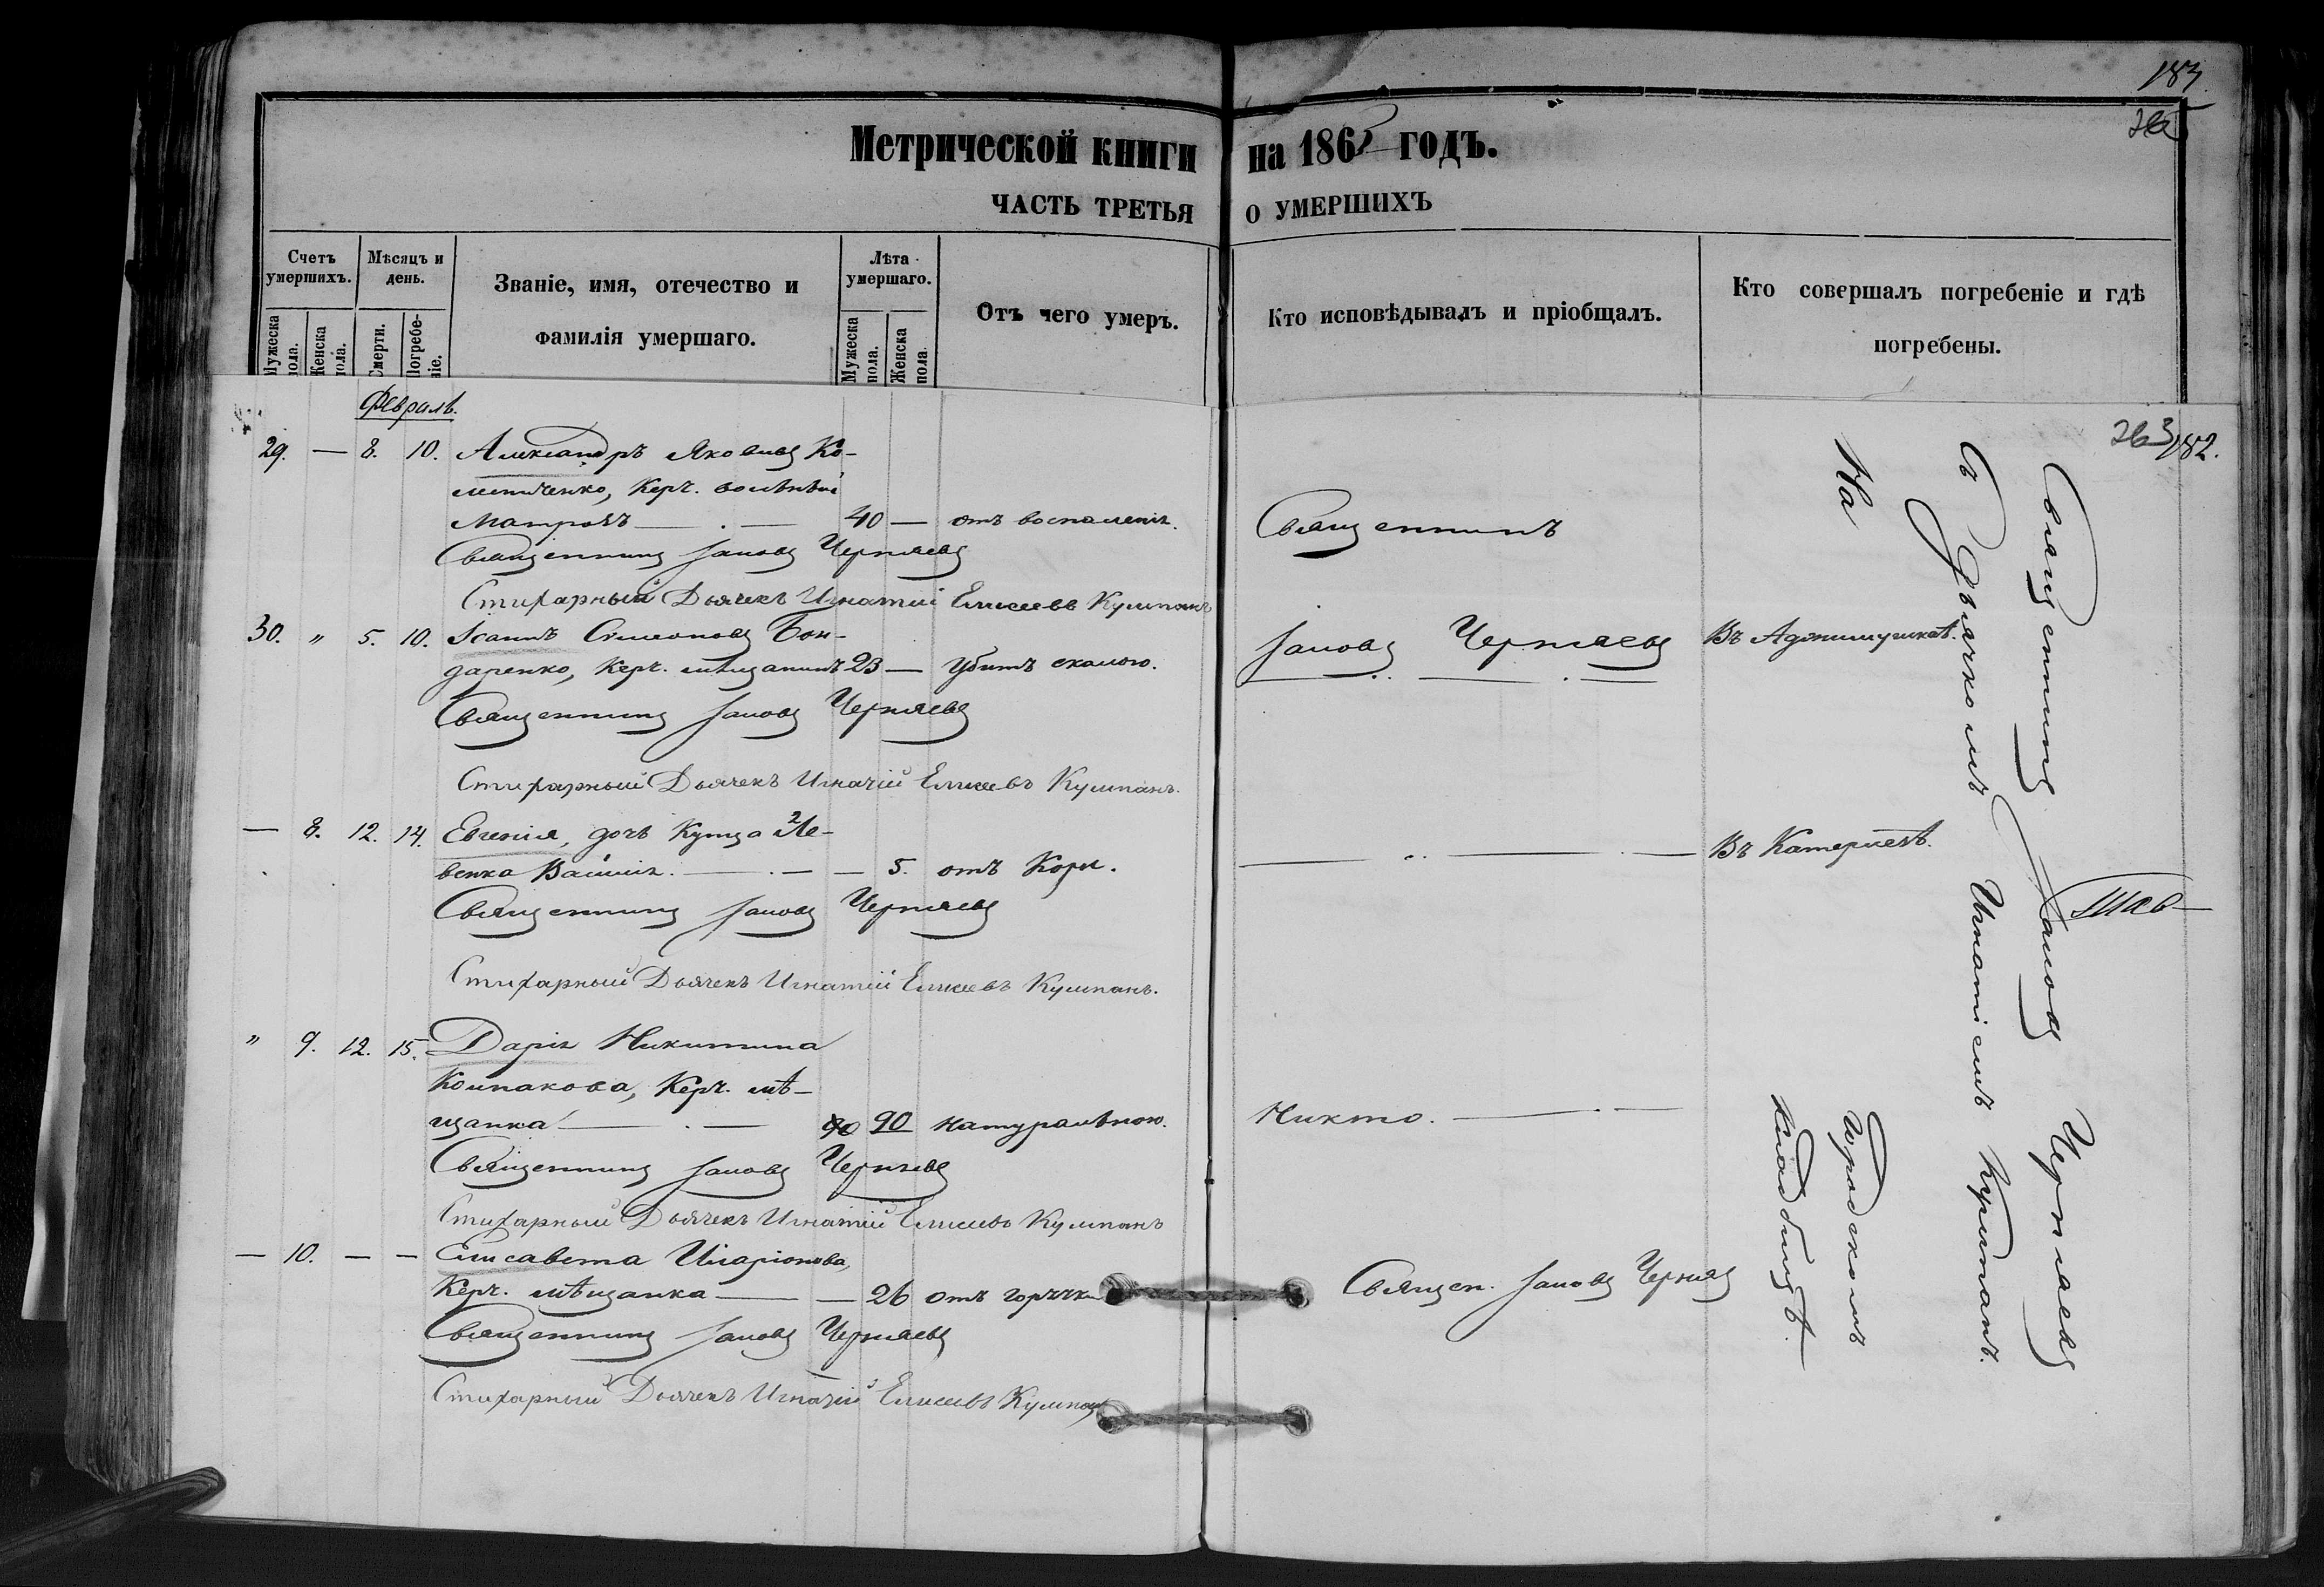 183.
Метрической книги на 1865 годъ.
ЧАСТЬ ТРЕТЬЯ О УМЕРШИХЪ
Счетъ умершихъ.
Мужеска пола.
Женска пола.
Мѣсяцъ и день.
Смерти.
Погребеніе.
Званіе, имя, отечество и фамилія умершаго.
Лѣта умершаго.
Мужеска пола.
Женска пола.
Отъ чего умеръ.
Кто исповѣдывалъ и пріобщалъ.
Кто совершалъ погребеніе и гдѣ погребены.
263
182.
Февраль.
29. — 8. 10. Александръ Яковлевъ Ко-
Керч. вольный
Матрозъ — 40 — отъ воспаленія.
Священникъ Іаковъ Черняевъ
Стихарный Дьячекъ Игнатій Елисеевъ Кумпанъ
30. „ 5. 10. Іоаннъ Симеоновъ Бон-
даренко, Керч. мѣщанинъ 23 — Убитъ скалою.
Священникъ Іаковъ Черняевъ
Стихарный Дьячекъ Игнатій Елисеевъ Кумпанъ.
— 8. 12. 14. Евгенія, дочь Купца
— 5. отъ Кори.
Священникъ Іаковъ Черняевъ
Стихарный Дьячекъ Игнатій Елисеевъ Кумпанъ.
„ 9. 12. 15. Дарія Никитина
Колпакова, Керч. мѣ-
щанка — 90 натуральною.
Священникъ Іаковъ Черняевъ
Стихарный Дьячекъ Игнатій Елисеевъ Кумпанъ
— 10. — — Елисавета Иларіонова,
Керч. мѣщанка — — 26 отъ горячки
Священникъ Іаковъ Черняевъ
Стихарный Дьячекъ Игнатій Елисеевъ Кумпанъ
Священникъ
Іаковъ Черняевъ
Никто.
Священ. Іаковъ Черняев
Въ Аджимушкаѣ.
Въ Катерлезѣ.
Священникъ Іаковъ Черняевъ
Съ Дьячкомъ Игнатіемъ Кумпанъ.
На Городскомъ
Кладбищѣ.